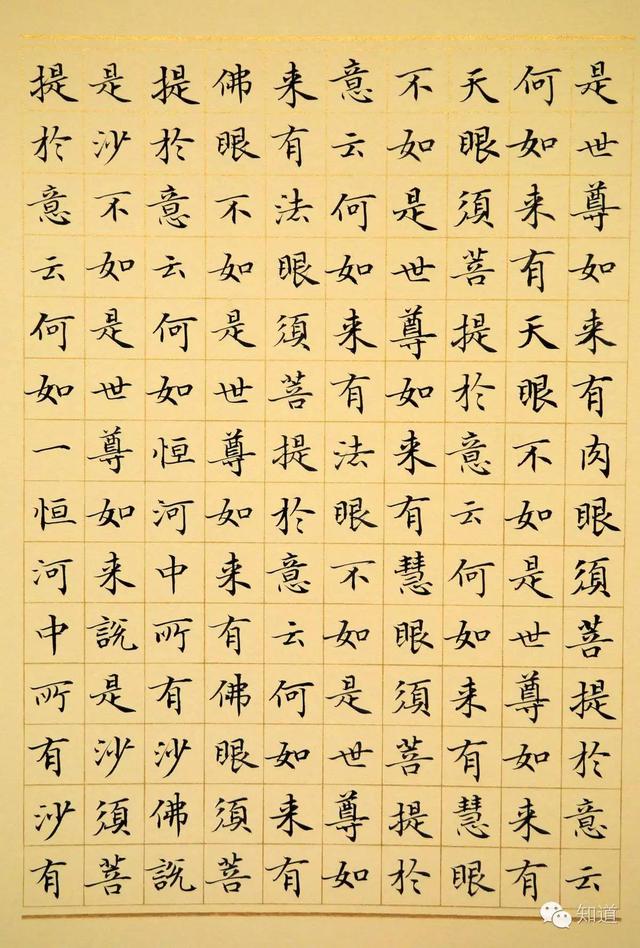 是世尊如来有肉眼須菩提於意云
何如来有天眼不如是世尊如来有
天眼須菩提於意云何如来有慧眼
不如是世尊如来有慧眼須菩提於
意云何如来有法眼不如是世尊如
来有法眼須菩提於意云何如来有
佛眼不如是世尊如来有佛眼須菩
提於意云何如恒河中所有沙佛説
是沙不如是世尊如来説是沙須菩
提於意云何如一恒河中所有沙有
知道